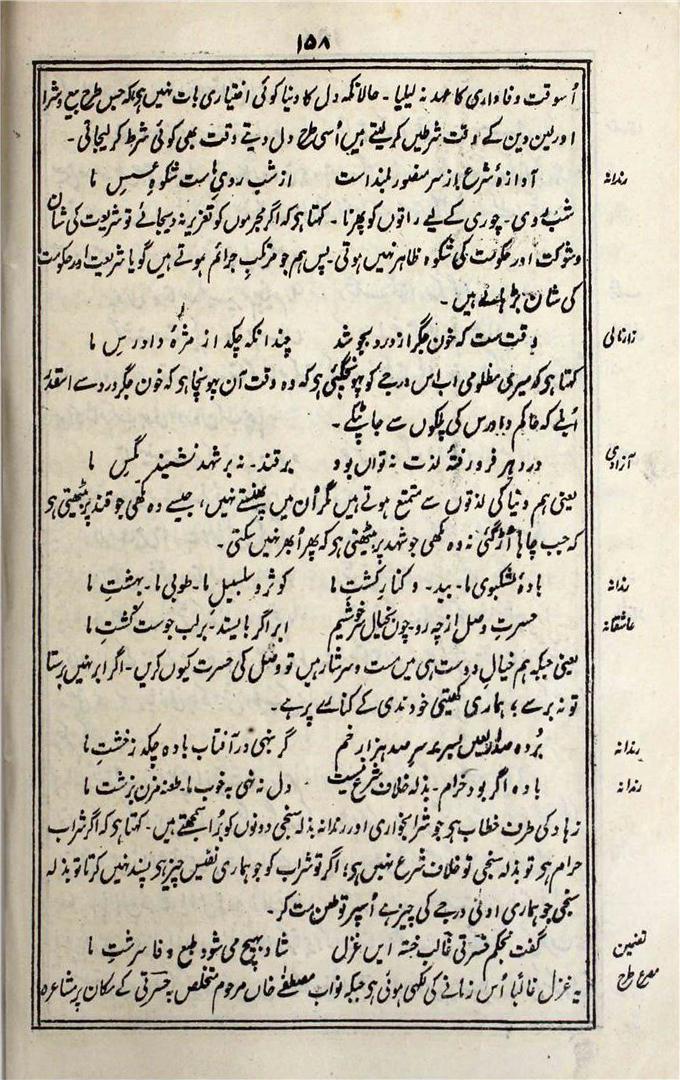 ۱۵۸
اُسوقت وفاداری کا عہد نہ لیلیا - حالانکہ دل کا دنیا کوئی اختیاری بات نہیں ہی بلکہ جس طرح بیع و شرا
اور لین دین کے وقت شرطیں کر لیتے ہیں اُسی طرح دل دیتے وقت بھی کوئی شرط کر لیجاتی -
رندانہ آوازۂ شرع از سرِ منصور بلند است از شب رویِ ماست شکوہِ عسسِ ما
شب روی - چوری کے لیے راتوں کو پھرنا - کہتا ہو کہ اگر مجرموں کو تعزیر نہ دیجائے تو شریعت کی شان
و شوکت اور حکومت کی شکوہ ظاہر نہیں ہوتی - پس ہم جو مرتکبِ جرائم ہوتے ہیں گویا شریعت اور حکومت
کی شان بڑہاتے ہیں -
زارنالی وقت ست که خونِ جگر از درد بجوشد چندانکہ چکد از مژۂ دادرسِ ما
کہتا ہو کہ میری مظلومی اب اس درجے کو پہونچگئی ہو کہ وہ وقت آن پہونچا ہو کہ خونِ جگر درد سے اسقدر
اُبلے کہ حاکم دادرس کی پلکوں سے جا ٹپکے -
آزادی در دہر فرو رفتۂ لذت نہ تواں بود بر قند - نہ بر شہد نشیند مگسِ ما
یعنی ہم دنیا کی لذتوں سے متمتع ہوتے ہیں مگر اُن میں پھنستے نہیں، جیسے وہ مکھی جو قند پر بیٹھتی ہو
کہ جب چاہا اُڑ گئی نہ وہ مکھی جو شہد پر بیٹھتی ہو کہ پھر اُبھر نہیں سکتی -
رندانہ بادۂ مشکبوی ما - بید - و کنارِ کِشتِ ما کوثر و سلبیلِ ما - طوبیٰ ما - بہشتِ ما
عاشقانہ حسرتِ وصل از چه رو - چوں بخیال سرخوشیم ابر اگر بایستد - بر لبِ جوست کشتِ ما
یعنی جبکہ ہم خیالِ دوست ہی میں مست و سرشار ہیں تو وصل کی حسرت کیوں کریں - اگر ابر نہیں برستا
تو نہ برسے؛ ہماری کھیتی خود ندی کے کنارے پر ہے -
رندانہ بُردہ صد اربعین بسر بر سرِ صد ہزار خم گر بنہی در آفتاب بادہ چکد ز خشتِ ما
رندانہ بادہ اگر بود حرام - بذلہ خلافِ شرع نیست دل نہ نہی بہ خوبِ ما - طعنہ مزن بہ زشتِ ما
زہاد کی طرف خطاب ہو جو شرابخواری اور رندانہ بذلہ سنجی دونوں کو بُرا سمجھتے ہیں - کہتا ہو کہ اگر شراب
حرام ہو تو بذلہ سنجی تو خلافِ شرع نہیں ہی؛ اگر تو شراب کو جو ہماری نفیس چیز ہی پسند نہیں کرتا تو بذلہ
سنجی جو ہماری ادنیٰ درجے کی چیز ہے اُسپر تو طعن مت کر -
تضمین گفت بحکم حسرتی غالبِ خستہ ایں غزل شاد بہیچ می شود طبعِ وفا سرشتِ ما
مصرع طرح یہ غزل غالباً اُس زمانے کی لکھی ہوئی ہو جبکہ نواب مصطفےٰ خاں مرحوم متخلص بہ حسرتی کے مکان پر مشاعرہ